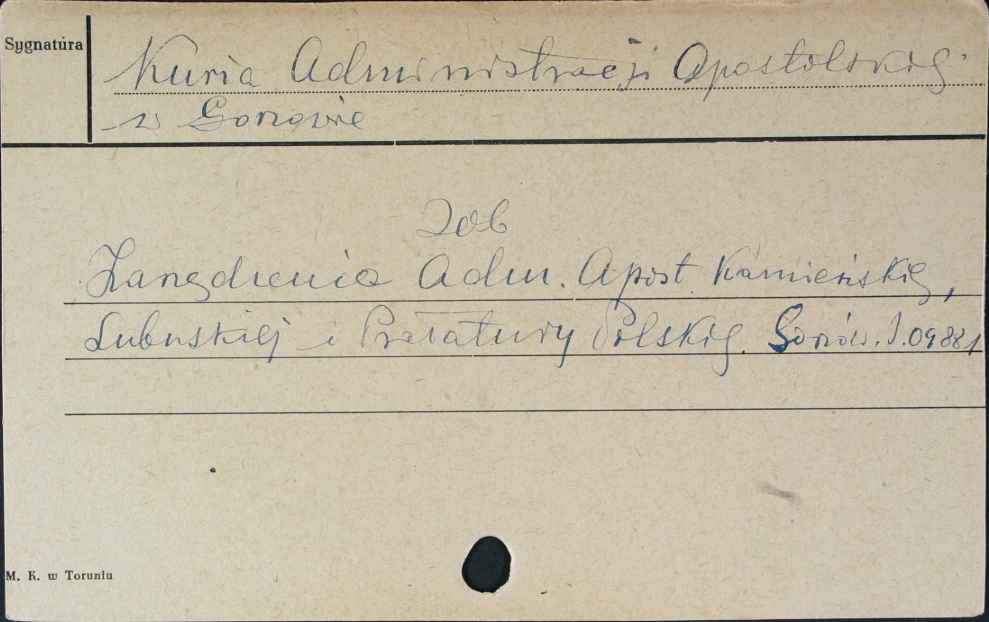 Sygnatura
Kuria Administracji Apostolskiej
w Gorzowie
Zob
Zarządzenia Adm. Apost. Kamieńskiej,
Lubuskiej i Prałatury Pilskiej. Gorzów. I.09881
M. K. w Toruniu